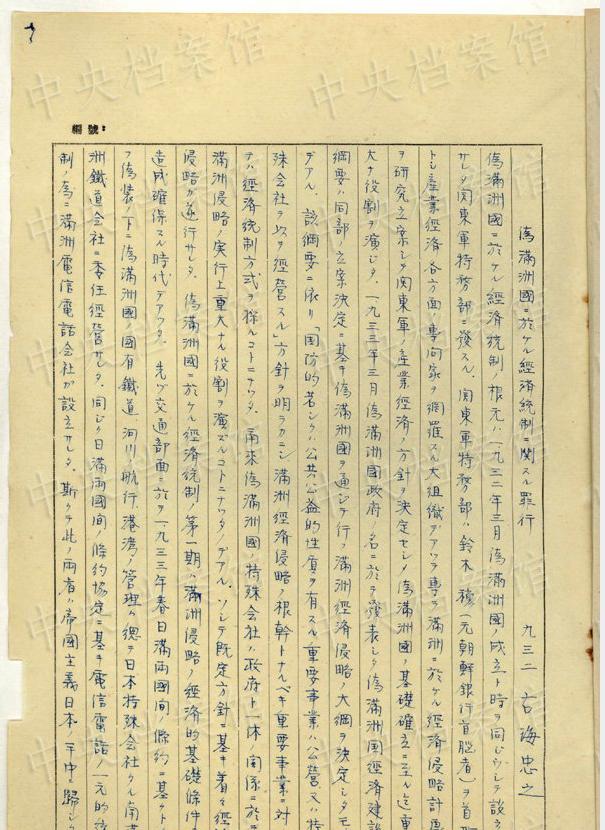 編號：
偽満洲國ニ於ケル經済統制ニ関スル罪行
九三二 古海忠之
偽満洲國ニ於ケル經済統制ノ根元ハ一九三二年三月偽満洲國ノ成立ト時ヲ同ジウシテ設立
サレタ関東軍特務部ニ發スル。関東軍特務部ハ鈴木穆(元朝鮮銀行首脳者)ヲ首
トシ産業経済各方面ノ専門家ヲ網羅スル大組織デアツテ専ラ満洲ニ於ケル經済侵略計畫
ヲ研究立案シテ関東軍ノ産業經済ノ方針ヲ決定セシメ偽満洲國ノ基礎確立ニ至ル迄重
大ナ役割ヲ演ジタ。一九三三年三月偽満洲國政府ノ名ニ於テ發表シタ偽満洲国經済建設
綱要ハ同部ノ立案決定ニ基キ偽満洲國ヲ通シテ行フ満洲經済侵略ノ大綱ヲ決定シタモ
デアル。該綱要ニ依リ「國防的若シクハ公共公益的性質ヲ有スル重要事業ハ公營又ハ特
殊会社ヲ以テ經營スル」方針ヲ明ラカニシ満洲經済侵略ノ根幹トナルベキ重要事業ニ対
テハ經済統制方式ヲ採ルコトニナツタ。爾来偽満洲國ノ特殊会社ハ政府ト一体ノ関係ニ於テ
満洲侵略ノ実行上重大ナル役割ヲ演ズルコトニナツタノデアル。ソシテ既定方針ニ基キ着々經
侵略ガ遂行サレタ。偽満洲國ニ於ケル經済統制ノ第一期ハ満洲侵略ノ經済的基礎條件ノ
造成確保スル時代デアツタ。先ヅ交通部面ニ於テ一九三三年春日満両國間ノ條約ニ基ク
フ偽装ノ下ニ偽満洲國ノ國有鐵道河川ノ航行、港湾ノ管理ハ總テ日本特殊会社タル南満
洲鐵道会社ニ委任經營サレタ。同ジク日満両國間ノ條約協定ニ基キ電信電話ノ一元的統
制ノ為ニ満洲電信電話会社ガ設立サレタ。斯クテ此ノ両者ハ帝國主義日本ノ手中ニ歸シタ
中央档案馆